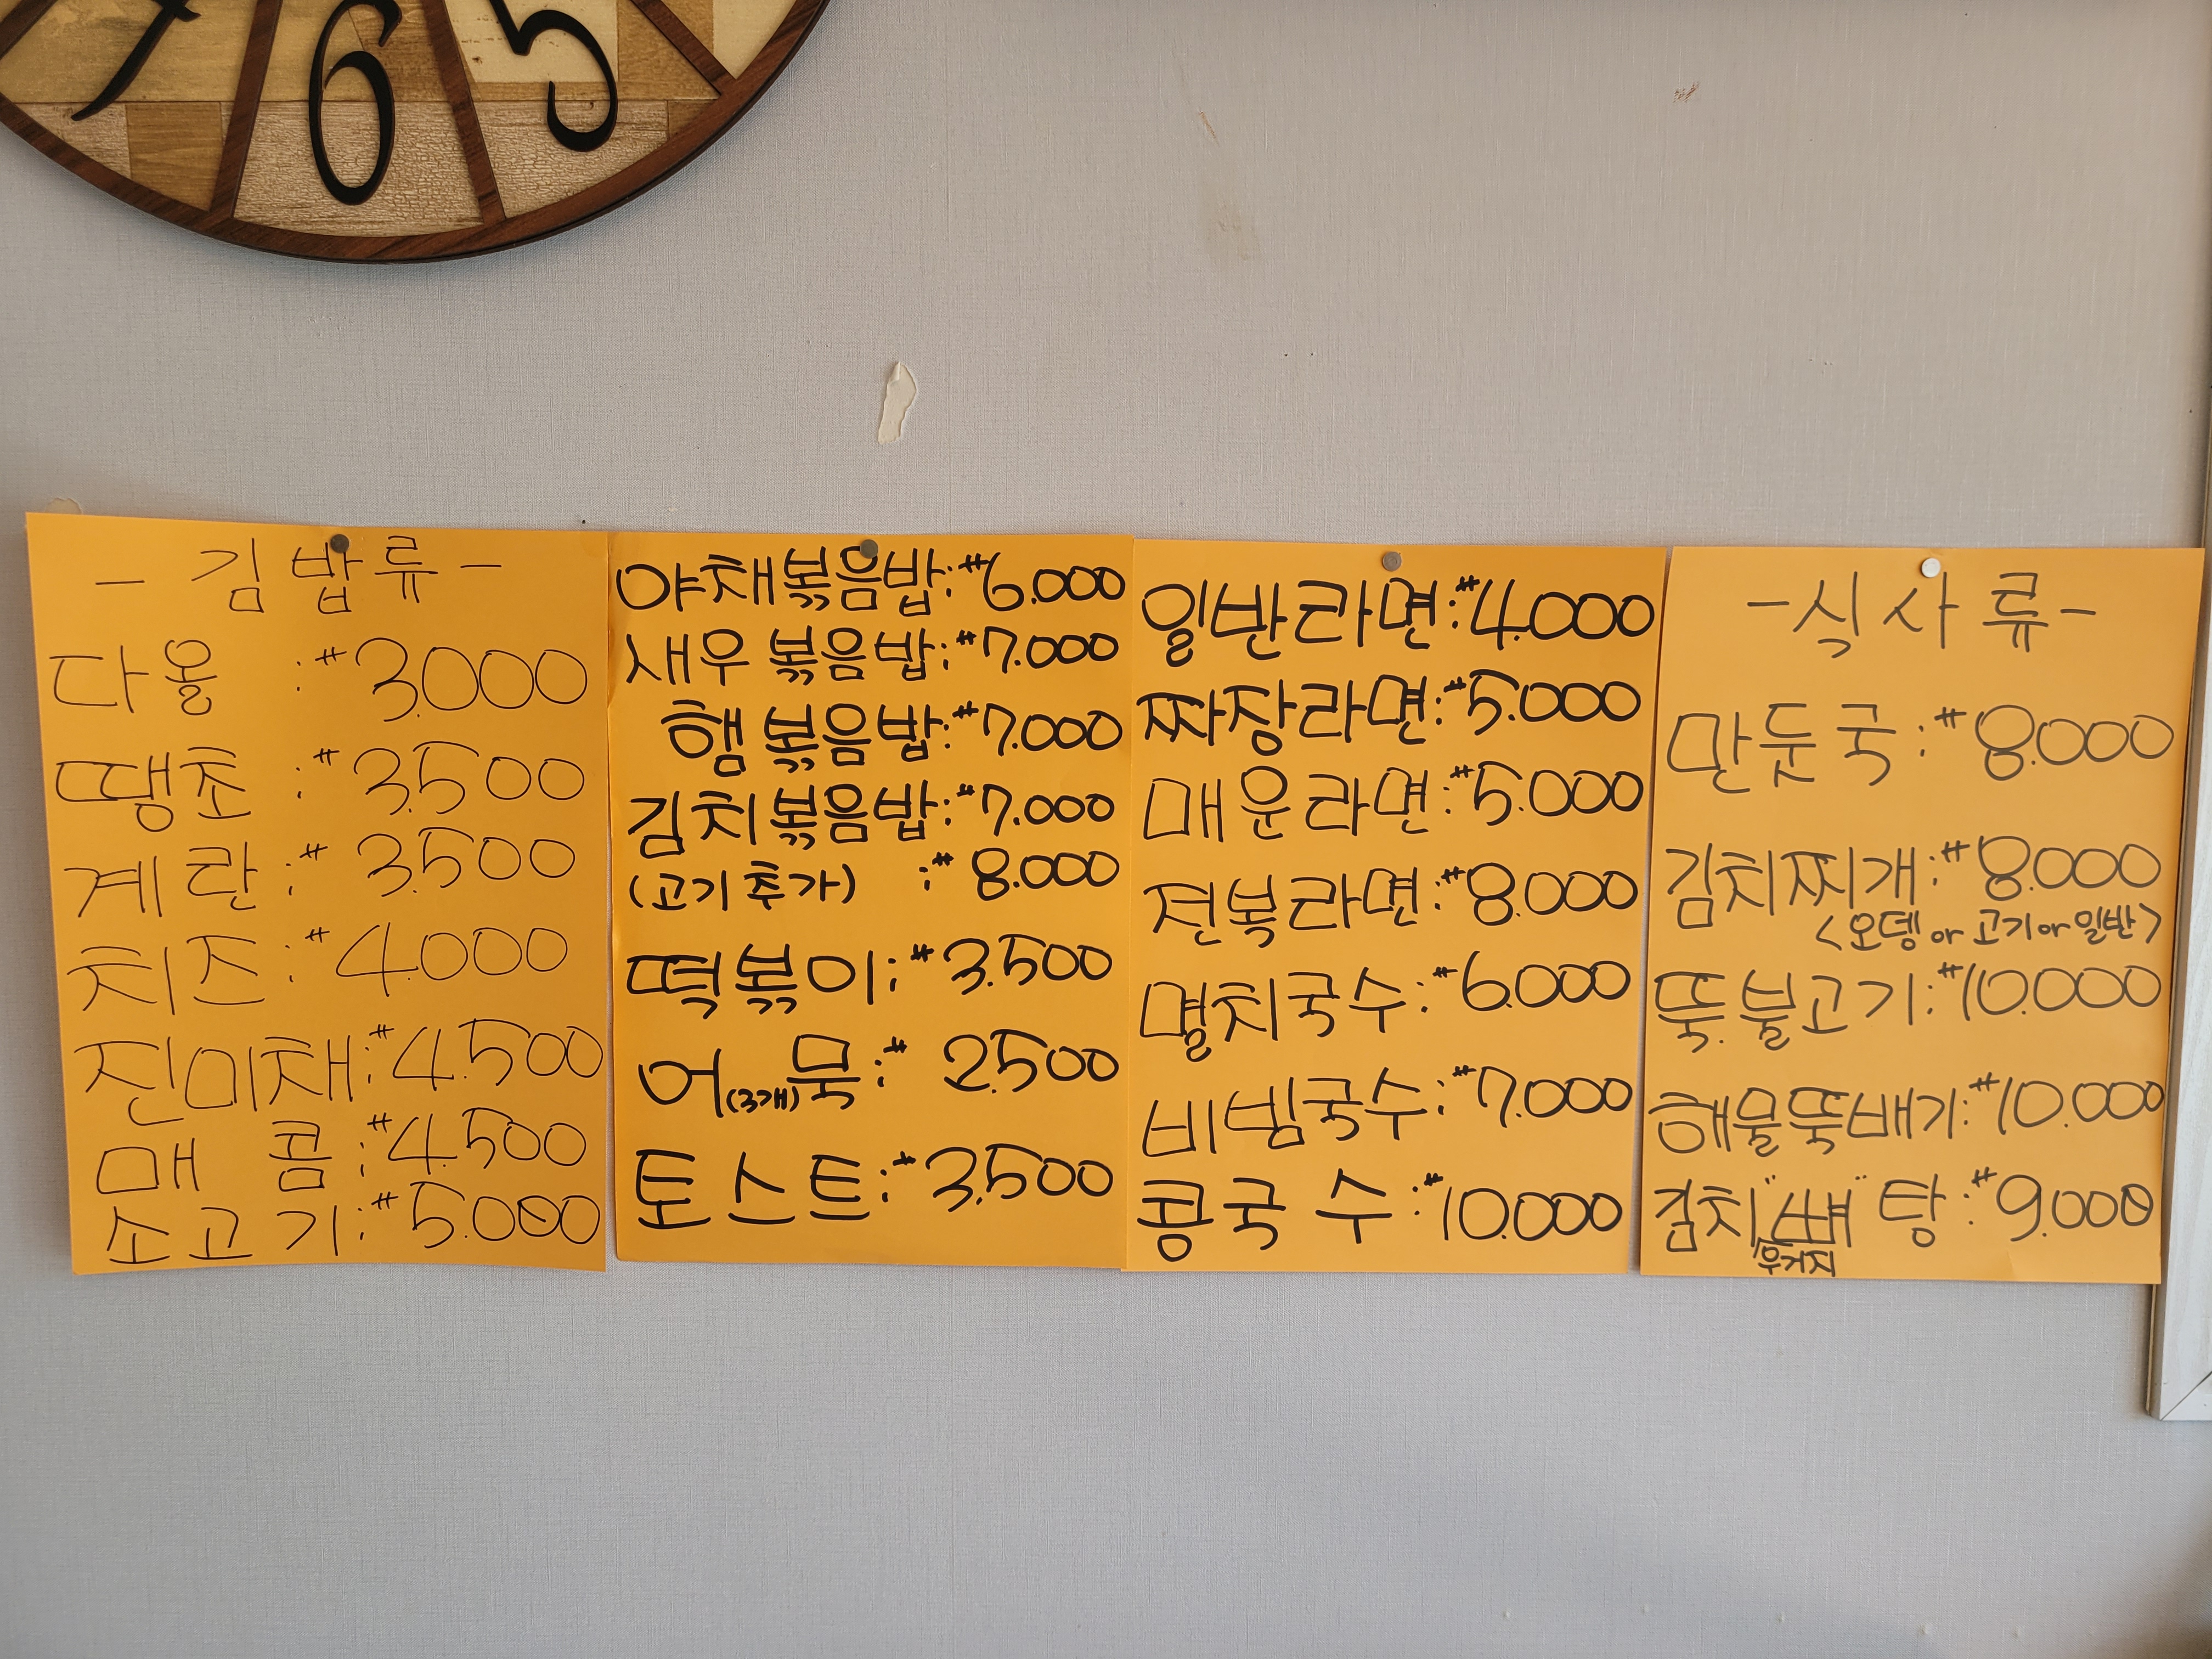 7 6 5
- 김밥류 -
다올 : ₩3.000
땡초 : ₩3.500
계란 : ₩3.500
치즈 : ₩4.000
진미채 : ₩4.500
매콤 : ₩4.500
소고기 : ₩5.000
야채볶음밥 : ₩6.000
새우볶음밥 : ₩7.000
햄볶음밥 : ₩7.000
김치볶음밥 : ₩7.000
(고기 추가) : ₩8.000
떡볶이 : ₩3.500
어(3개)묵 : ₩2.500
토스트 : ₩3.500
일반라면 : ₩4.000
짜장라면 : ₩5.000
매운라면 : ₩5.000
전복라면 : ₩8.000
멸치국수 : ₩6.000
비빔국수 : ₩7.000
콩국수 : ₩10.000
- 식사류 -
만둣국 : ₩8.000
김치찌개 : ₩8.000
<오뎅 or 고기 or 일반>
뚝.불고기 : ₩10.000
해물뚝배기 : ₩10.000
김치"뼈"탕 : ₩9.000
우거지